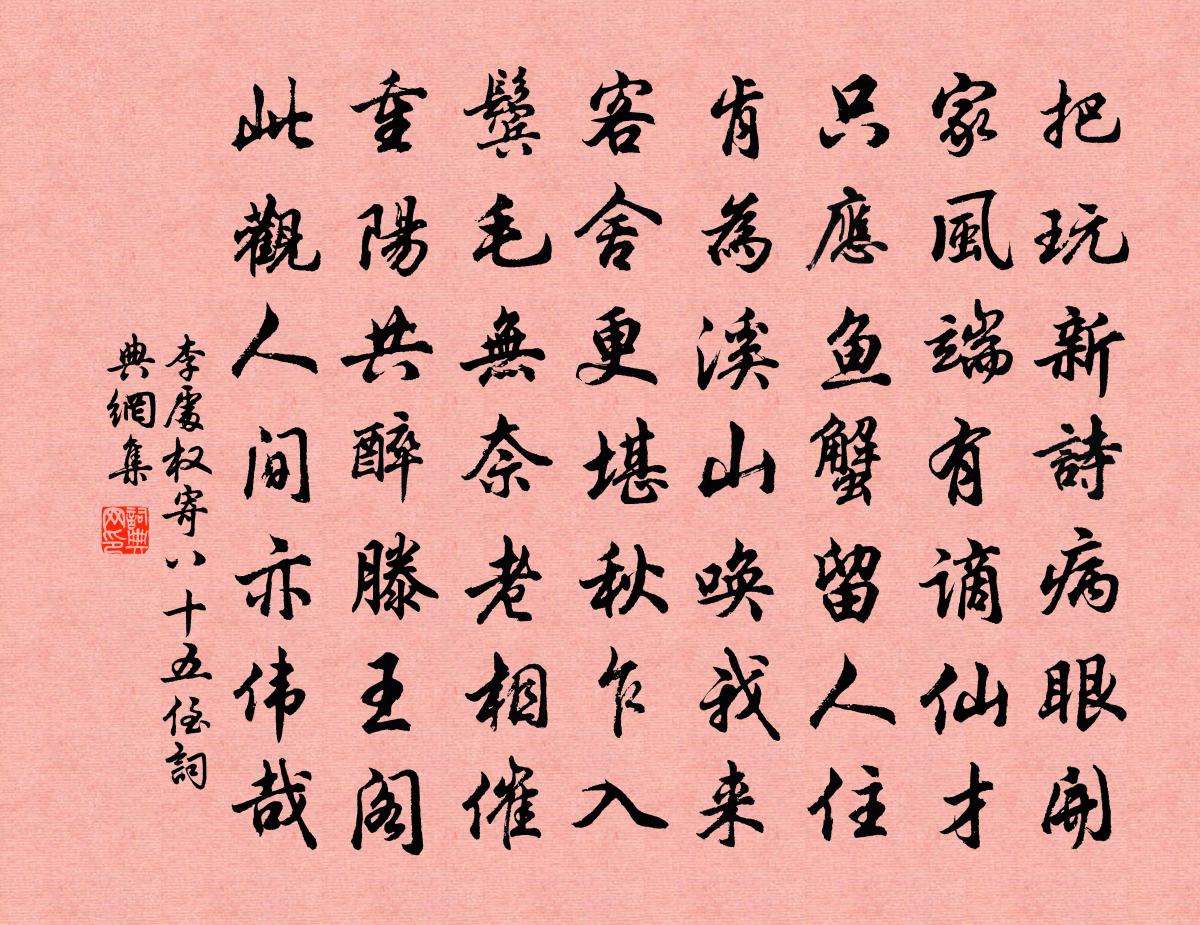 把玩新詩病眼開
家風端有謫仙才
只應鱼蟹留人住
肯為溪山唤我来
客舍更堪秋乍入
鬢毛無奈老相催
重陽共醉滕王阁
此觀人间亦伟哉
李處权寄八十五侄詞
典網集
詞典
网印